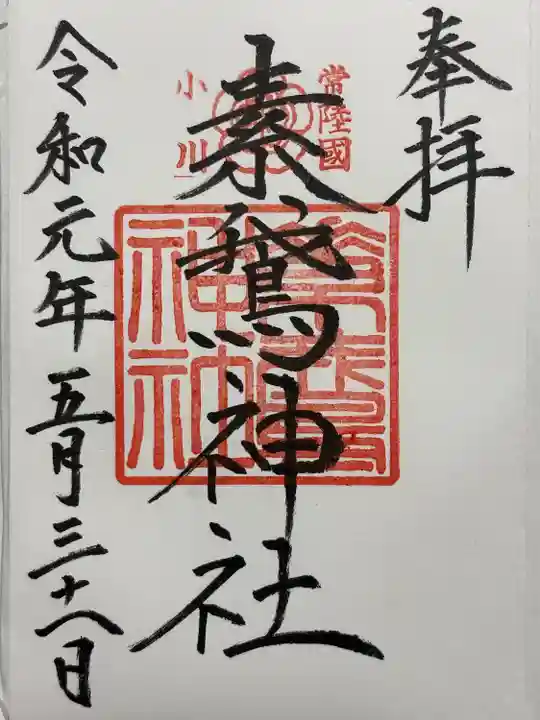 奉拝
常陸國
小川
素鵞神社
令和元年五月三十八日